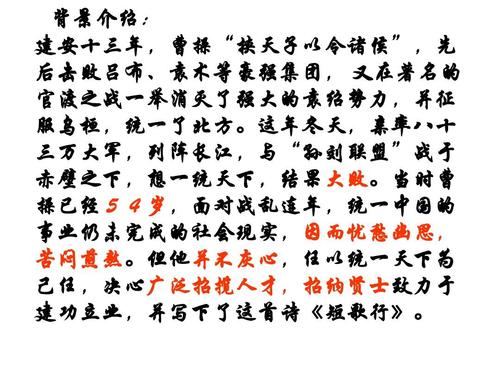 背景介绍：
建安十三年，曹操“挟天子以令诸侯”，先
后击败吕布、袁术等豪强集团，又在著名的
官渡之战一举消灭了强大的袁绍势力，并征
服乌桓，统一了北方。这年冬天，亲率八十
三万大军，列阵长江，与“孙刘联盟”战于
赤壁之下，想一统天下，结果大败。当时曹
操已经５４岁，面对战乱连年，统一中国的
事业仍未完成的社会现实，因而忧愁幽思，
苦闷煎熬。但他并不灰心，任以统一天下为
己任，决心广泛招揽人才，招纳贤士致力于
建功立业，并写下了这首诗《短歌行》。